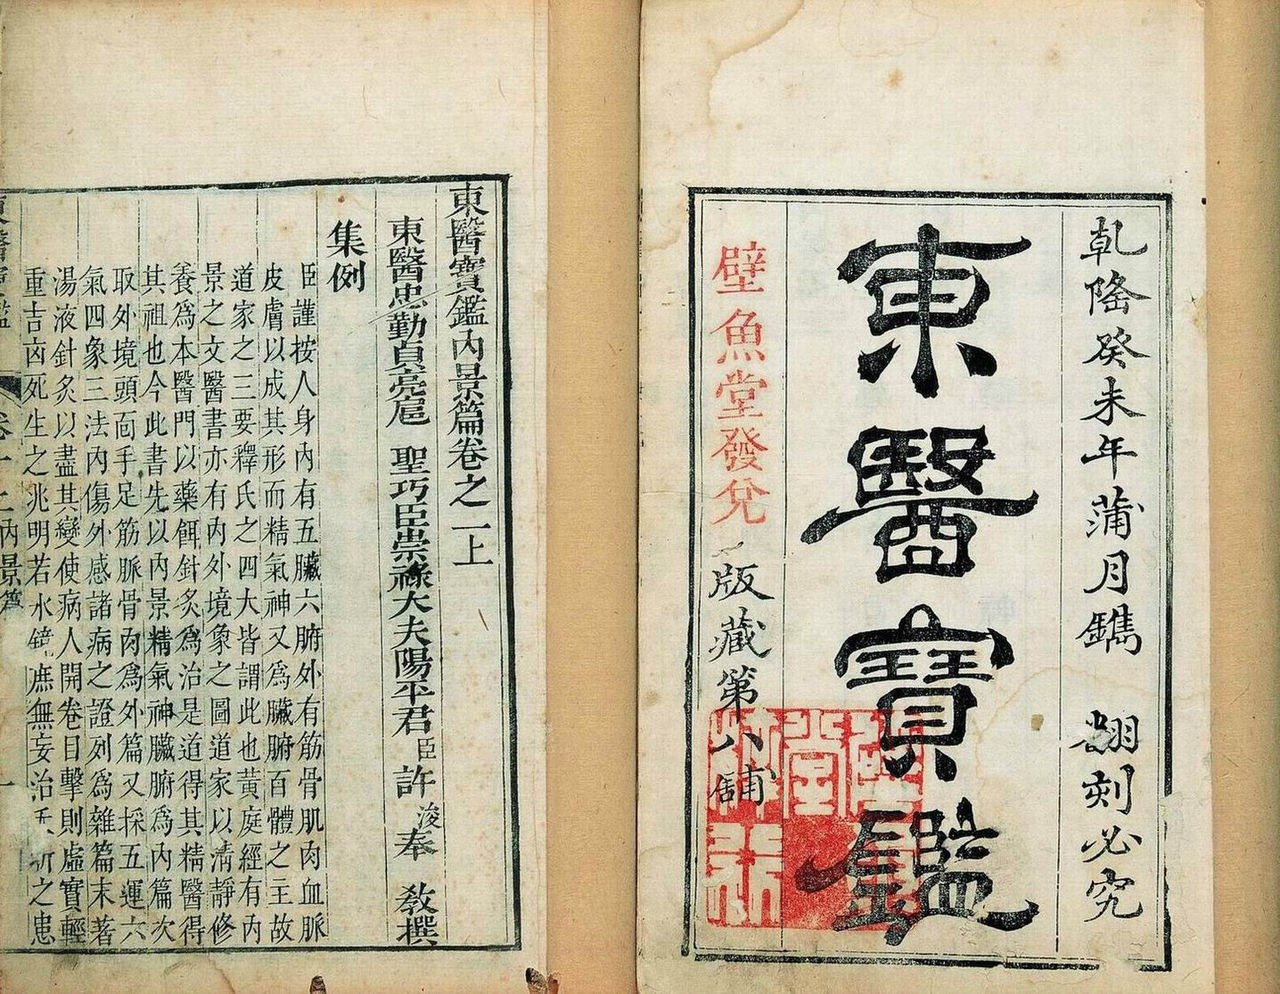 乾隆癸未年蒲月鐫 翻刻必究
東醫寶鑑
壁魚堂發兌 版藏第八舖
東醫寶鑑內景篇卷之一上
東醫忠勤貞亮扈 聖巧臣崇祿大夫陽平君臣許浚奉 敎撰
集例
臣謹按人身內有五臟六腑外有筋骨肌肉血脈
皮膚以成其形而精氣神又爲臟腑百體之主故
道家之三要釋氏之四大皆謂此也黃庭經有內
景之文醫書亦有內外境象之圖道家以淸靜修
養爲本醫門以藥餌針灸爲治是道得其精醫得
其祖也今此書先以內景精氣神臟腑爲內篇次
取外境頭面手足筋脈骨肉爲外篇又採五運六
氣四象三法內傷外感諸病之證列爲雜篇末著
湯液針灸以盡其變使病人開卷目擊則虛實輕
重吉凶死生之兆明若水鏡庶無妄治夭折之患
東醫寶鑑 卷一上內景篇 一